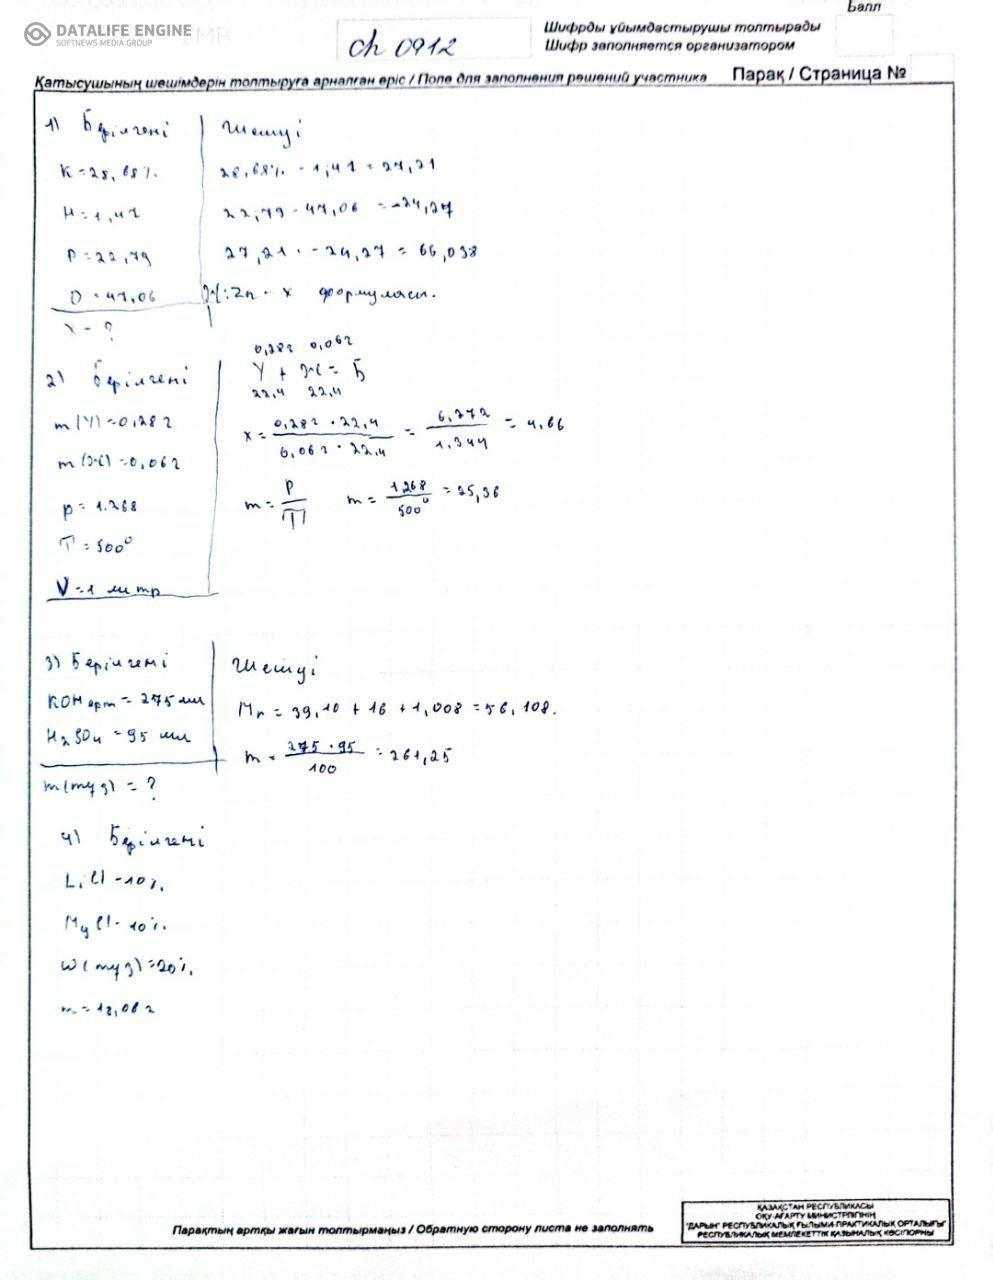 DATALIFE ENGINE
SOFTNEWS MEDIA GROUP
Балл
ch 0912
Шифрды ұйымдастырушы толтырады
Шифр заполняется организатором
Қатысушының шешімдерін толтыруға арналған өріс / Поле для заполнения решений участника
Парақ / Страница №
1) Берілгені
Шешуі
K = 28,68%.
28,68% - 1,47 = 27,21
H = 1,47
22,79 - 47,06 = -24,27
P = 22,79
27,21 · -24,27 = 66,038
O = 47,06
Ж: Zn - x формуласы.
x - ?
2) Берілгені
0,28г 0,06г
Y + Ж = Б
22,4 22,4
m(Y) = 0,28г
x = 0,28г · 22,4 / 0,06г · 22,4 = 6,272 / 1,344 = 4,66
m(Ж) = 0,06г
p = 1.268
m = P / T m = 1,268 / 500° = 25,36
T = 500°
V = 1 литр
3) Берілгені
Шешуі
KOH ерт = 275 мл
Mr = 39,10 + 16 + 1,008 = 56,108.
H2SO4 = 95 мл
m = 275 · 95 / 100 = 261,25
m(тұз) = ?
4) Берілгені
LiCl - 10%.
MgCl - 10%.
w(тұз) = 20%.
m = 18,06г
Парақтың артқы жағын толтырмаңыз / Обратную сторону листа не заполнять
ҚАЗАҚСТАН РЕСПУБЛИКАСЫ
ОҚУ-АҒАРТУ МИНИСТРЛІГІНІҢ
"ДАРЫН" РЕСПУБЛИКАЛЫҚ ҒЫЛЫМИ-ПРАКТИКАЛЫҚ ОРТАЛЫҒЫ"
РЕСПУБЛИКАЛЫҚ МЕМЛЕКЕТТІК ҚАЗЫНАЛЫҚ КӘСІПОРНЫ